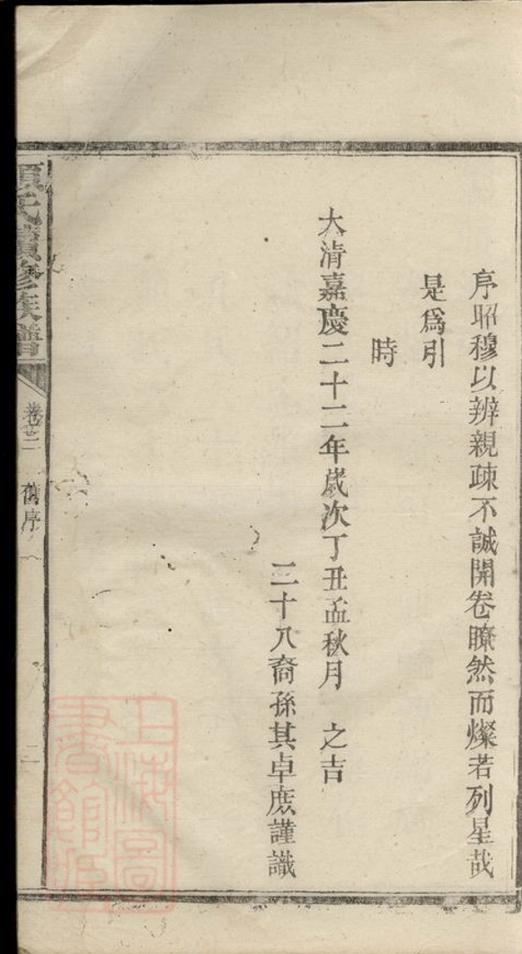 序昭穆以辨親疎不誠開卷瞭然而燦若列星哉
是爲引
時
大清嘉慶二十二年歲次丁丑孟秋月 之吉
三十八裔孫其卓庶謹識
氏續修族譜
卷 舊序
二
上海圖書館藏